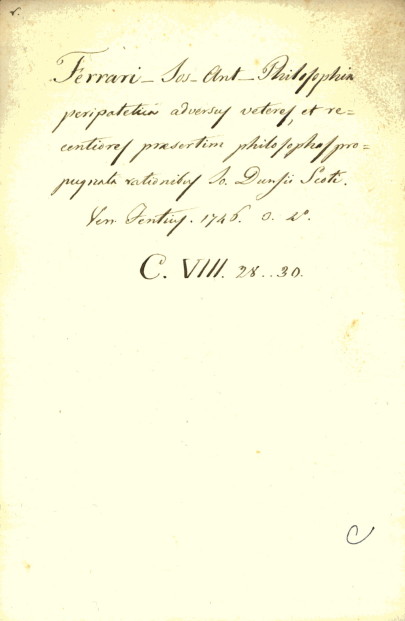 v.
Ferrari - Jos - Ant - Philosophia
peripatetica adversus veteres, et re=
centiores præsertim philosophos pro=
pugnata rationibus Jo. Dunsii Scoti.
Ven. 1746. 4º.
C. VIII. 28..30.
C